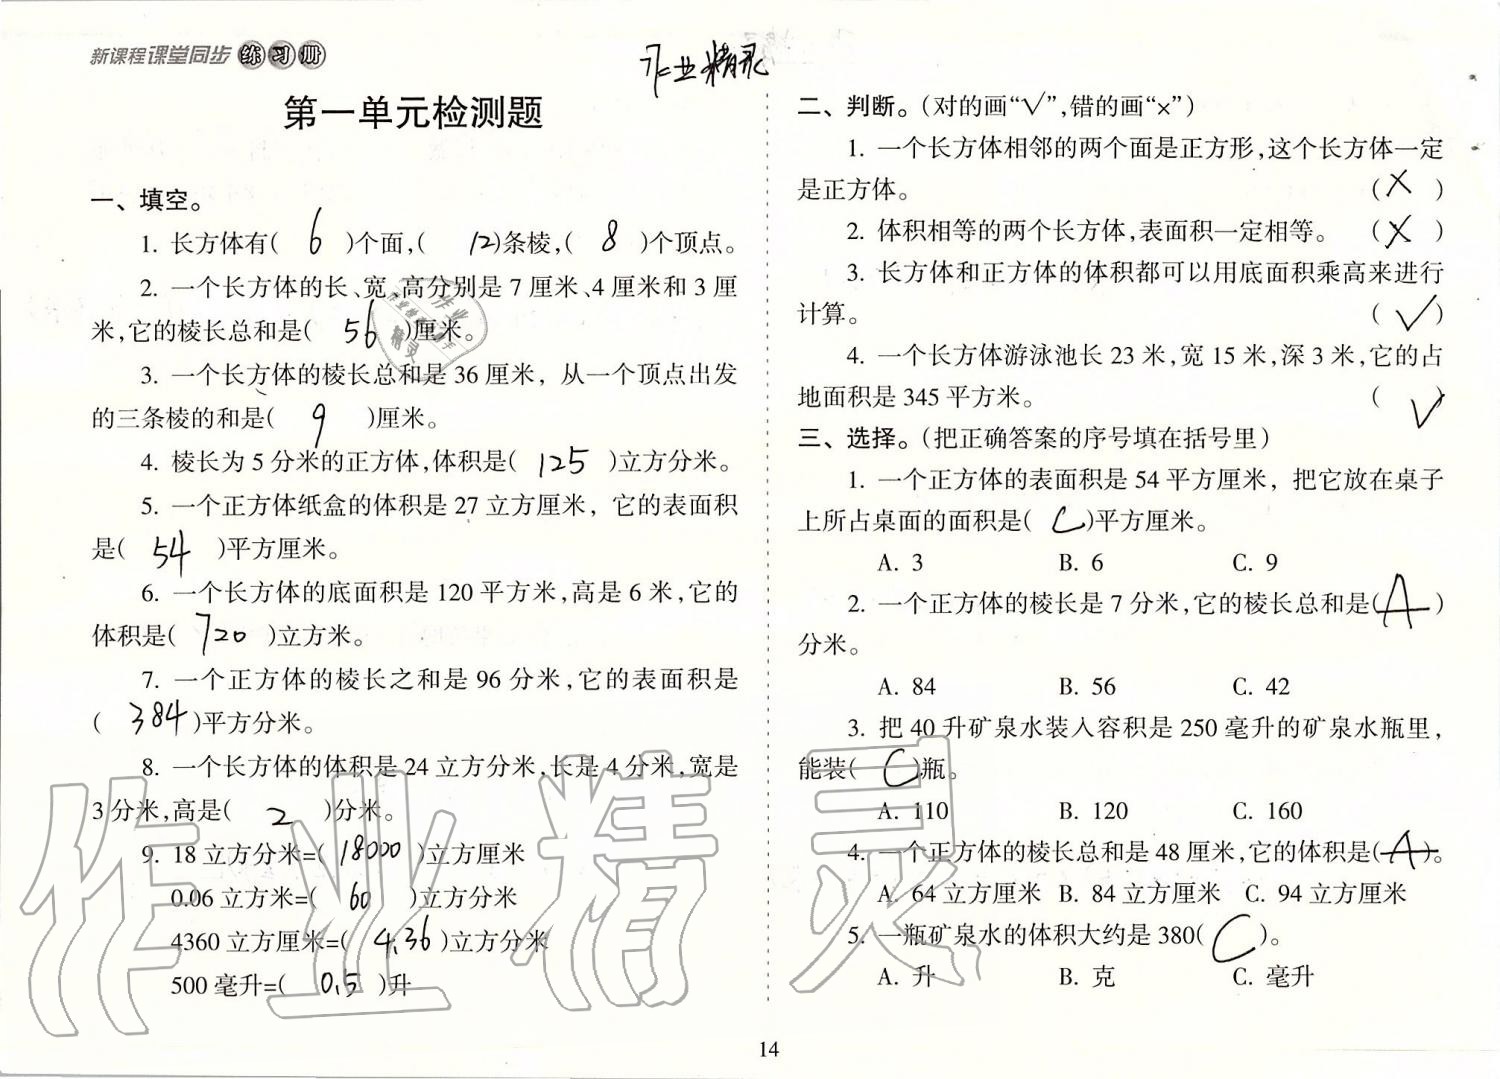 新课程课堂同步练习册
作业精灵
第一单元检测题
一、填空。
1. 长方体有( 6 )个面,( 12)条棱,( 8 )个顶点。
2. 一个长方体的长、宽、高分别是 7 厘米、4 厘米和 3 厘
米,它的棱长总和是( 56 )厘米。
3. 一个长方体的棱长总和是 36 厘米，从一个顶点出发
的三条棱的和是( 9 )厘米。
4. 棱长为 5 分米的正方体,体积是( 125 )立方分米。
5. 一个正方体纸盒的体积是 27 立方厘米，它的表面积
是( 54 )平方厘米。
6. 一个长方体的底面积是 120 平方米,高是 6 米,它的
体积是( 720 )立方米。
7. 一个正方体的棱长之和是 96 分米,它的表面积是
( 384 )平方分米。
8. 一个长方体的体积是 24 立方分米,长是 4 分米,宽是
3 分米,高是( 2 )分米。
9. 18 立方分米=( 18000 )立方厘米
0.06 立方米=( 60 )立方分米
4360 立方厘米=( 4.36 )立方分米
500 毫升=( 0.5 )升
二、判断。(对的画“√”,错的画“×”)
1. 一个长方体相邻的两个面是正方形,这个长方体一定
是正方体。 ( × )
2. 体积相等的两个长方体,表面积一定相等。 ( × )
3. 长方体和正方体的体积都可以用底面积乘高来进行
计算。 ( √ )
4. 一个长方体游泳池长 23 米,宽 15 米,深 3 米,它的占
地面积是 345 平方米。 ( √ )
三、选择。(把正确答案的序号填在括号里)
1. 一个正方体的表面积是 54 平方厘米，把它放在桌子
上所占桌面的面积是( C )平方厘米。
A. 3 B. 6 C. 9
2. 一个正方体的棱长是 7 分米,它的棱长总和是( A )
分米。
A. 84 B. 56 C. 42
3. 把 40 升矿泉水装入容积是 250 毫升的矿泉水瓶里,
能装( C )瓶。
A. 110 B. 120 C. 160
4. 一个正方体的棱长总和是 48 厘米,它的体积是( A )。
A. 64 立方厘米 B. 84 立方厘米 C. 94 立方厘米
5. 一瓶矿泉水的体积大约是 380( C )。
A. 升 B. 克 C. 毫升
14
作业精灵